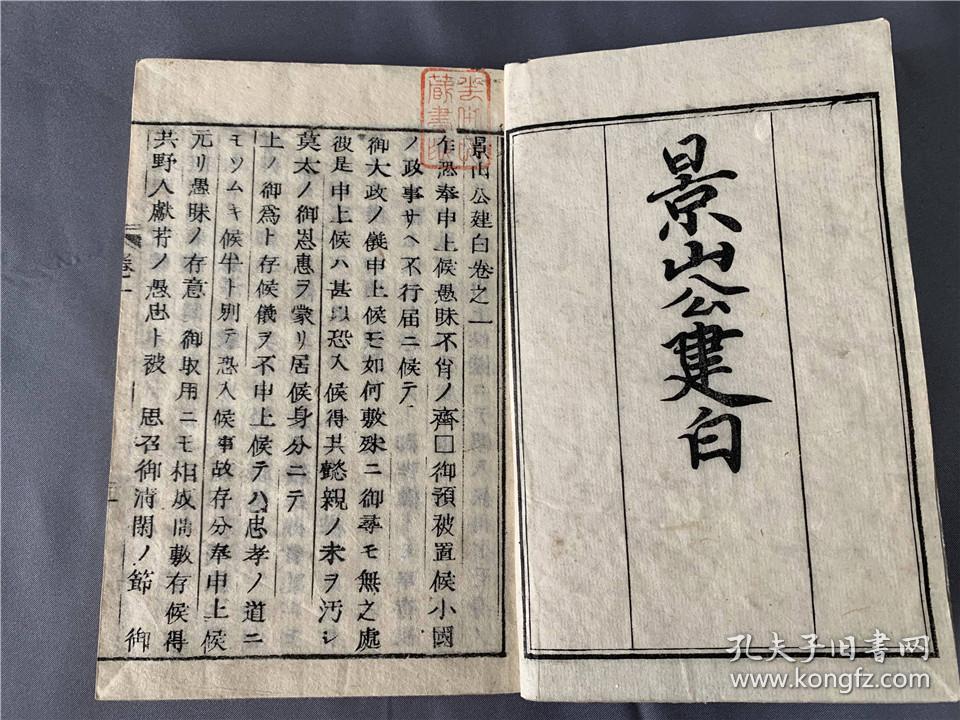 景山公建白
景山公建白卷之一
乍恐奉申上候愚昧不肖ノ齊□御預被置候小國
ノ政事サヘ不行届ニ候テ
御大政ノ儀申上候モ如何敷殊ニ御尋モ無之處
彼是申上候ハ甚以恐入候得共懿親ノ末ヲ汚シ
莫太ノ御恩惠ヲ蒙リ居候身分ニテ
上ノ御爲ト存候儀ヲ不申上候テハ忠孝ノ道ニ
モソムキ候半ト別テ恐入候事故存分奉申上候
元リ愚昧ノ存意 御取用ニモ相成間敷存候得
共野人獻芹ノ愚忠ト被 思召御清閑ノ節 御
卷一
藏書
孔夫子旧书网
www.kongfz.com